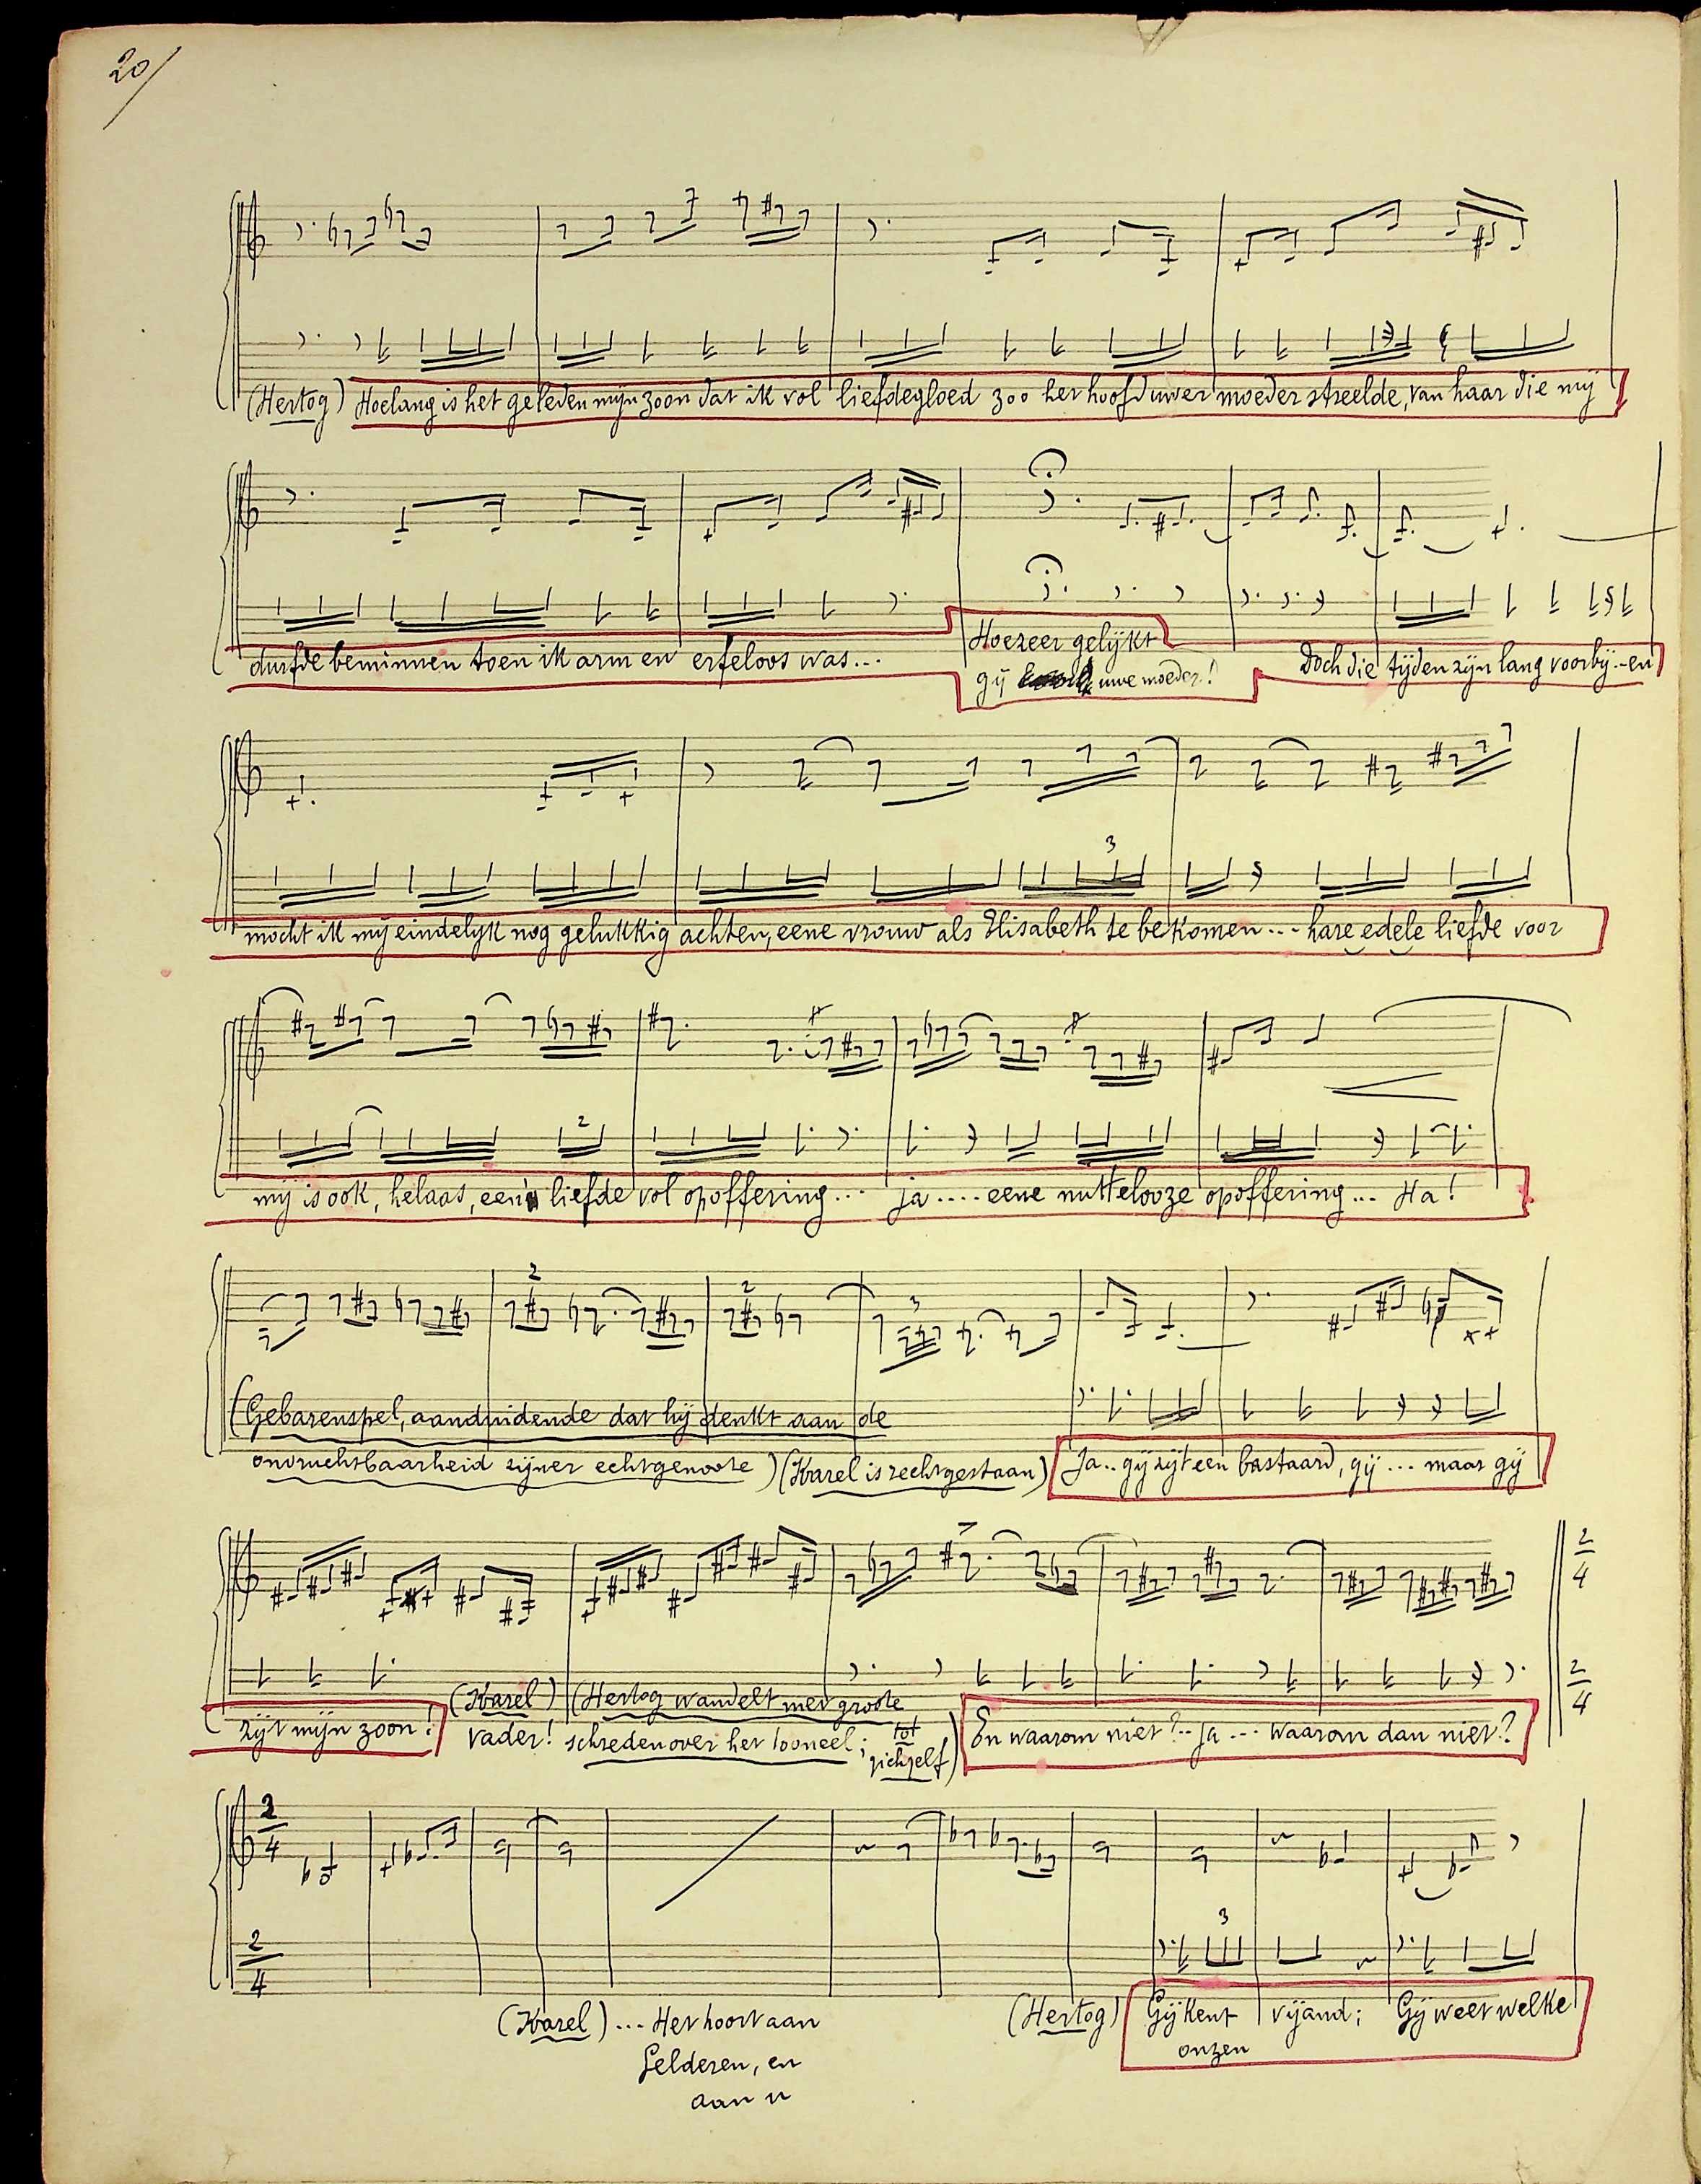 20/
(Hertog) Hoelang is het geleden mijn zoon dat ik vol liefdegloed zoo het hoofd uwer moeder streelde, van haar die mij
durfde beminnen toen ik arm en erfeloos was... Hoezeer gelijkt
gij uwe moeder! Doch die tijden zijn lang voorbij -- en
3
mocht ik mij eindelijk nog gelukkig achten, eene vrouw als Elisabeth te bekomen... hare edele liefde voor
2
mij is ook, helaas, eene liefde vol opoffering... ja.... eene nuttelooze opoffering... Ha!
2 2 3
(Gebarenspel, aanduidende dat hij denkt aan de
onvruchtbaarheid zijner echtgenoote) (Karel is rechtgestaan) Ja.. gij zijt een bastaard, gij... maar gij
2/4
2/4
zijt mijn zoon! (Karel) vader! (Hertog wandelt met groote
schreden over het tooneel; tot zichzelf) En waarom niet?.. ja... waarom dan niet?
2/4
3
2/4
(Karel)... Het hoort aan (Hertog) Gij kent vijand; Gij weet welke
onzen
Gelderen, en
aan u